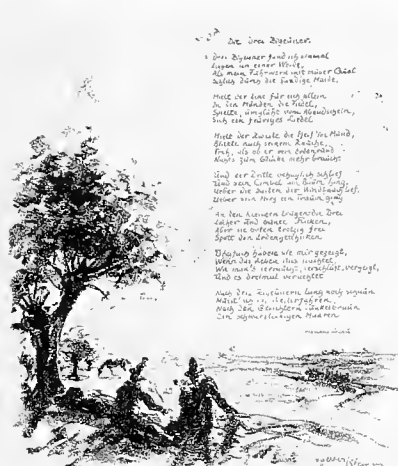 Die drei Zigeuner.
Drei Zigeuner fand ich einmal
Liegen an einer Weide,
Als mein Fuhrwerk mit müder Qual
Schlich durch die sandige Heide.
Hielt der Eine für sich allein
In den Händen die Fiedel,
Spielte, umglüht vom Abendschein,
Sich ein feuriges Liedel.
Hielt der Zweite die Pfeif im Mund,
Blickte nach seinem Rauche,
Froh, als ob er vom Erdenrund
Nichts zum Glücke mehr brauche.
Und der Dritte behaglich schlief
Und sein Cimbal am Baum hing,
Ueber die Saiten der Windhauch lief,
Ueber sein Herz ein Traum ging
An den Kleidern trugen die Drei
Löcher und bunte Flicken,
Aber sie trotzig frei
Spott den Erdengeschicken
Dreifach haben sie mir gezeigt,
Wenn das Leben uns nachtet,
Wie man's verraucht, verschläft, vergeigt,
Und es dreimal verachtet
Nach den Zigeunern lang noch schaun
Musst' ich im Weiterfahren,
Nach den Gesichtern dunkelbraun
Den schwarzlockigen Haaren